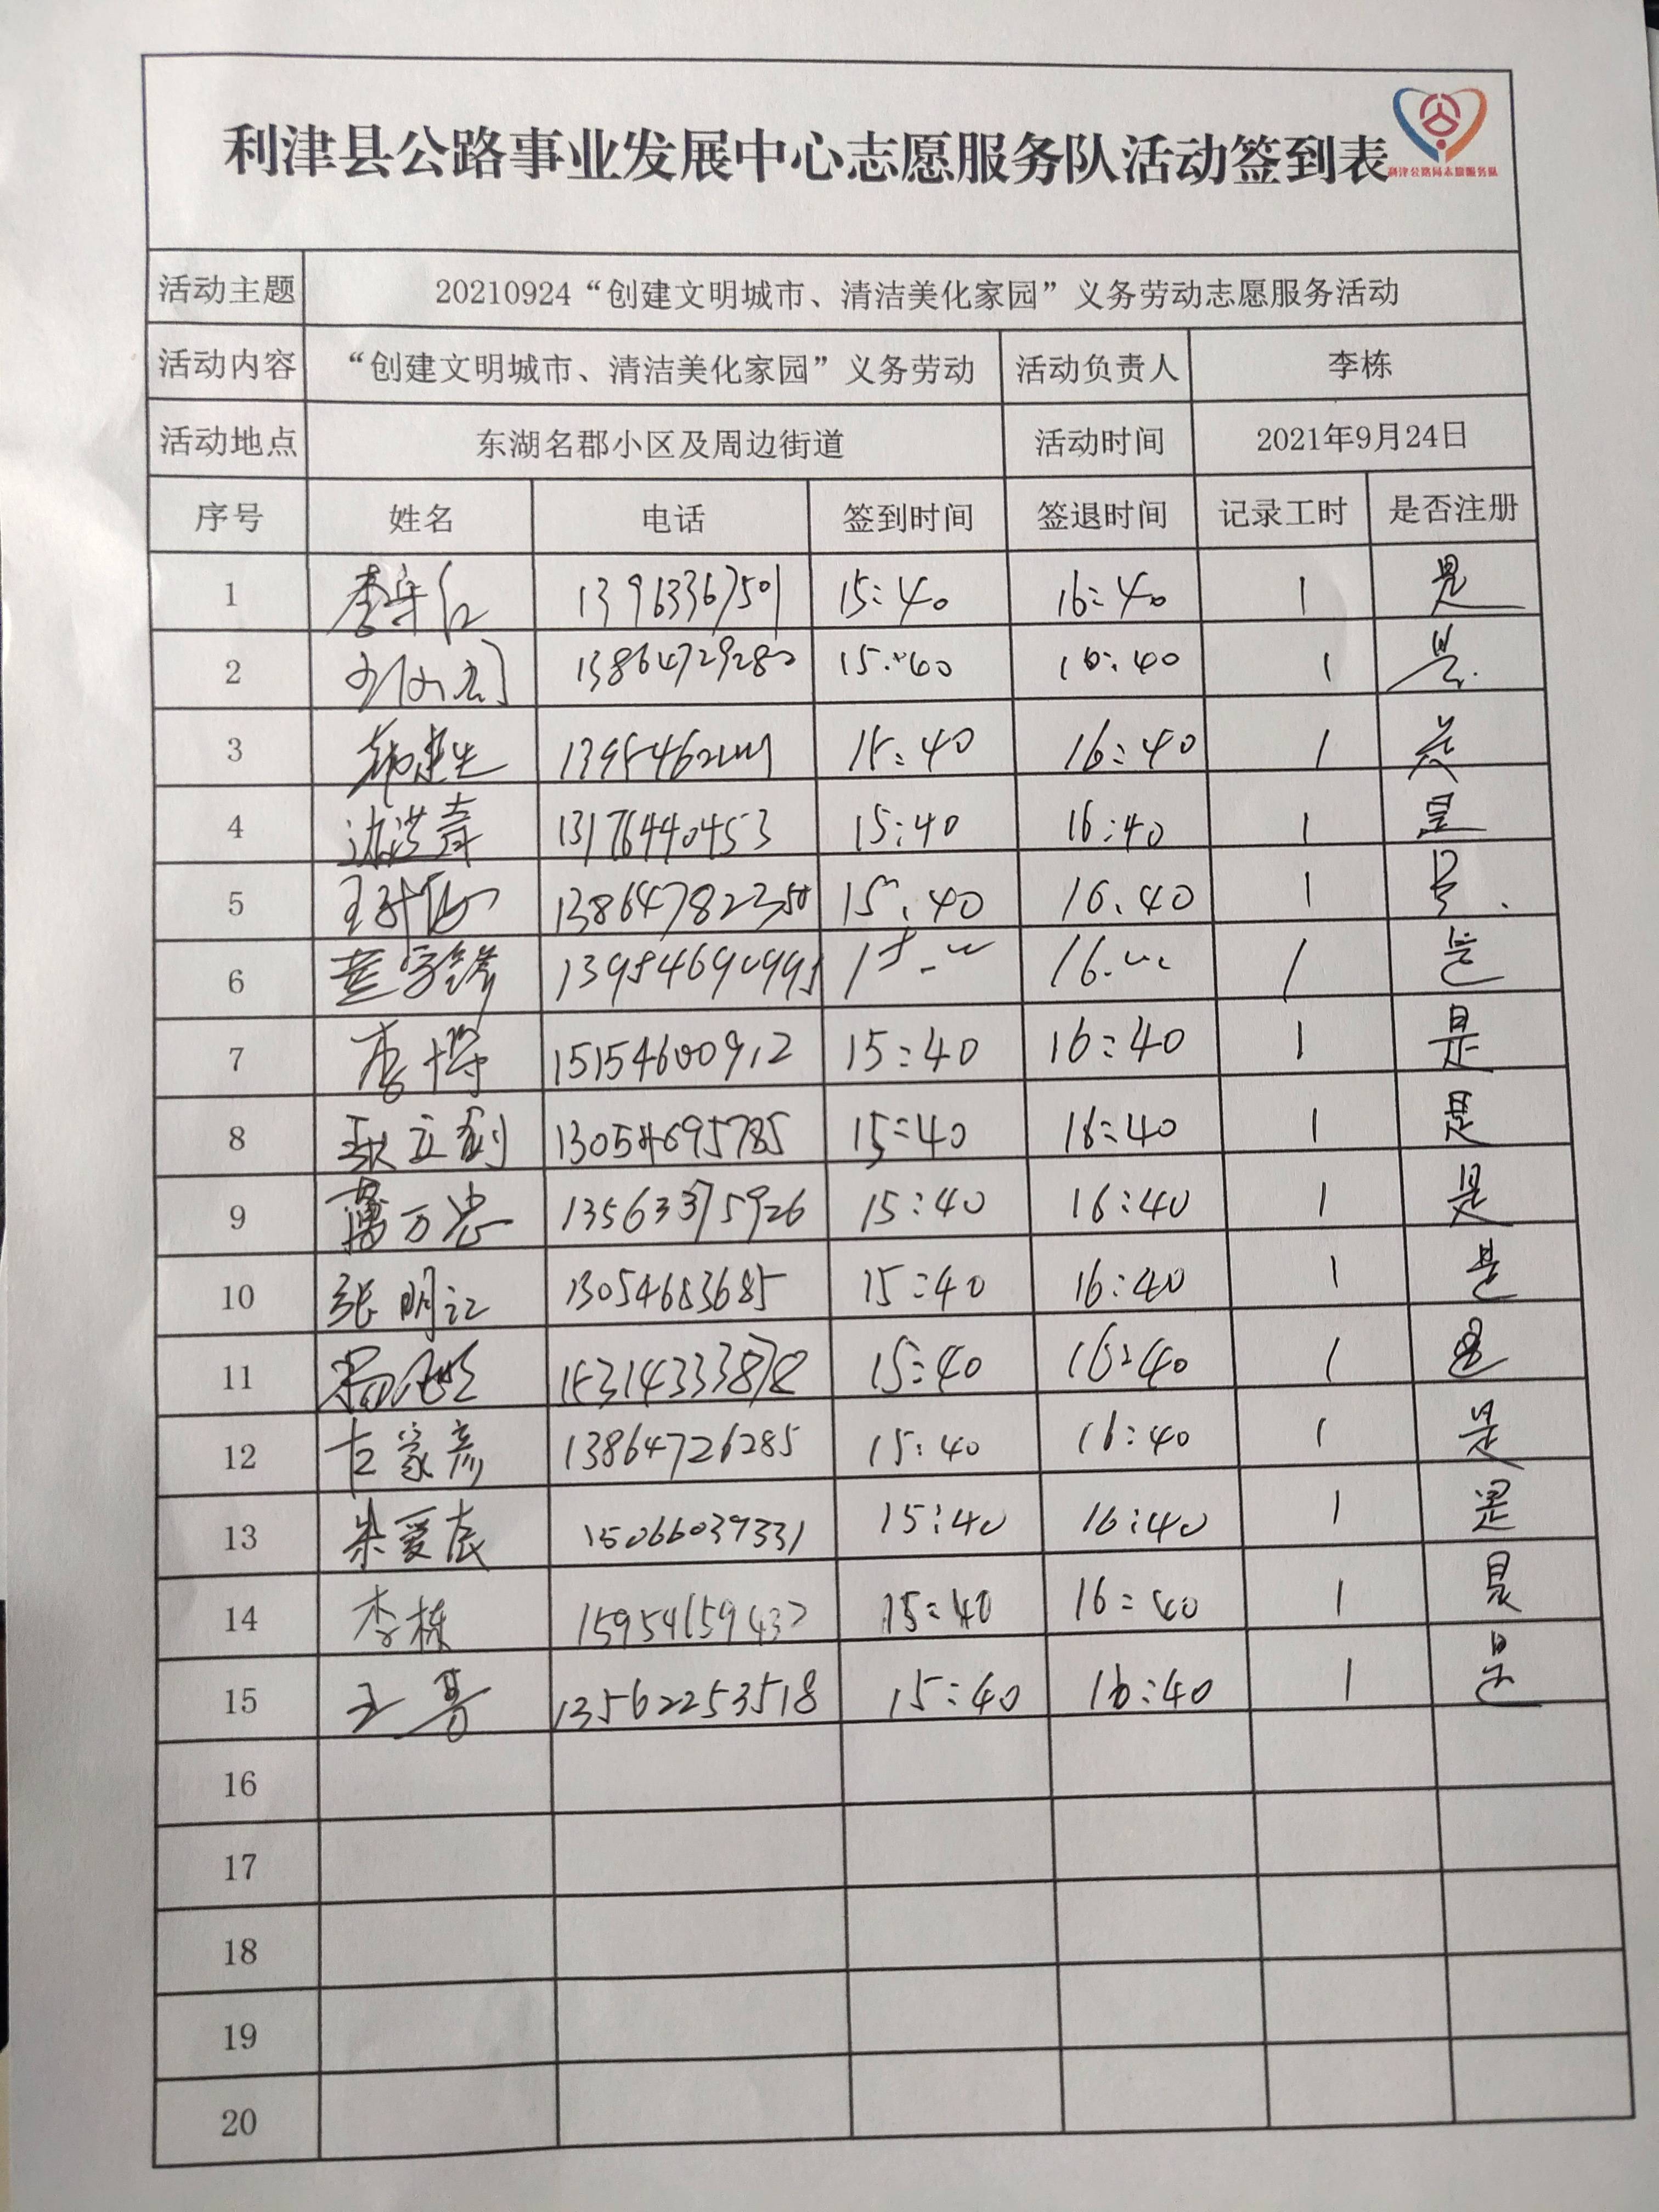 利津县公路事业发展中心志愿服务队活动签到表
利津公路局志愿服务队
活动主题 20210924“创建文明城市、清洁美化家园”义务劳动志愿服务活动
活动内容 “创建文明城市、清洁美化家园”义务劳动 活动负责人 李栋
活动地点 东湖名郡小区及周边街道 活动时间 2021年9月24日
序号 姓名 电话 签到时间 签退时间 记录工时 是否注册
1 13963367501 15:40 16:40 1 是
2 13864729280 15:40 16:40 1 是
3 15:40 16:40 1 是
4 13176440453 15:40 16:40 1 是
5 13864782350 15:40 16:40 1 是
6 1 是
7 李博 15154600912 15:40 16:40 1 是
8 13054695785 15:40 16:40 1 是
9 万忠 13563375926 15:40 16:40 1 是
10 张明江 13054683685 15:40 16:40 1 是
11 15314333878 15:40 16:40 1 是
12 13864726285 15:40 16:40 1 是
13 朱爱辰 15066037331 15:40 16:40 1 是
14 李栋 15954159432 15:40 16:40 1 是
15 13562253518 15:40 16:40 1 是
16
17
18
19
20